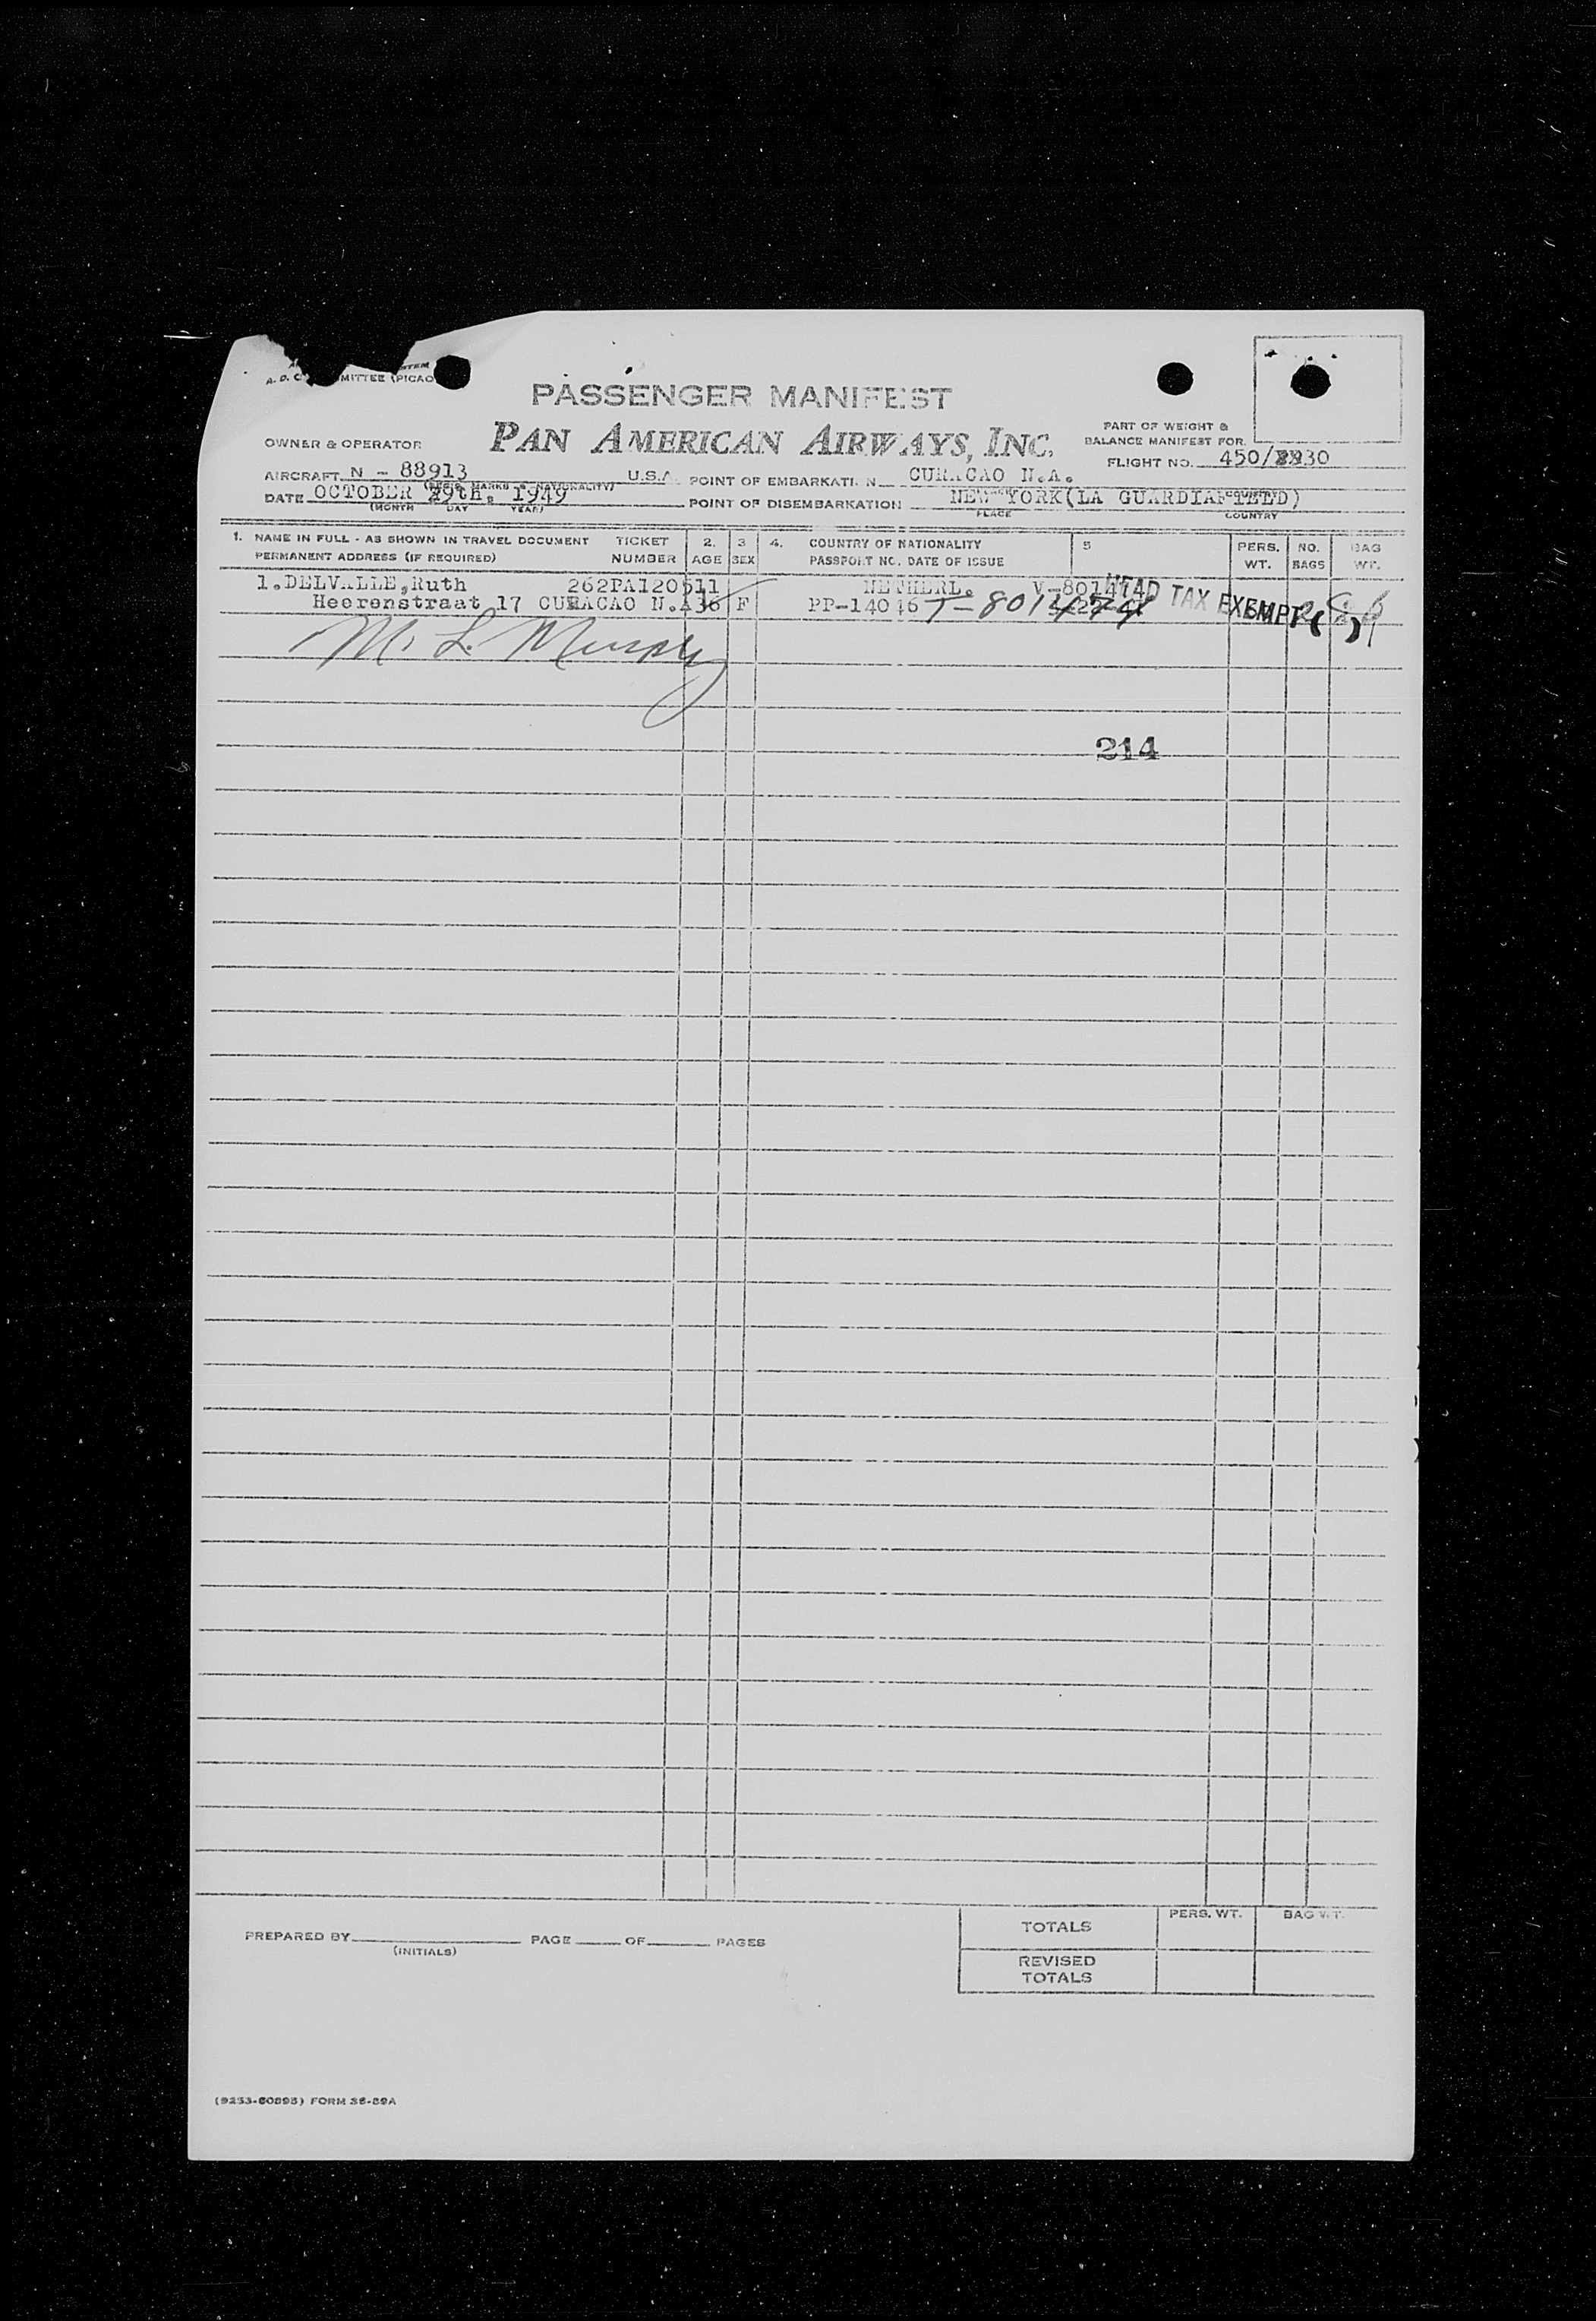 A. D. C. MITTEE (PICAO
PASSENGER MANIFEST
PAN AMERICAN AIRWAYS, INC.
OWNER & OPERATOR
PART OF WEIGHT &
BALANCE MANIFEST FOR
FLIGHT NO. 450/ 30
AIRCRAFT N - 88913 U.S.A.
(REGIS. MARKS & NATIONALITY)
POINT OF EMBARKATI N CURACAO N.A.
DATE OCTOBER 29th, 1949
(MONTH DAY YEAR)
POINT OF DISEMBARKATION NEW YORK (LA GUARDIA
PLACE COUNTRY
1. NAME IN FULL - AS SHOWN IN TRAVEL DOCUMENT TICKET 2. 3 4. COUNTRY OF NATIONALITY 5 PERS. NO. BAG
PERMANENT ADDRESS (IF REQUIRED) NUMBER AGE SEX PASSPORT NO. DATE OF ISSUE WT. BAGS WT.
1.DELVALLE,Ruth 262PA120511 NETHERL. HEAD TAX EXEMPT
Heerenstraat 17 CURACAO N.A 36 F PP-14046 T-801474
M. L. Murphy
214
PREPARED BY (INITIALS) PAGE OF PAGES
TOTALS PERS. WT. BAG WT.
REVISED
TOTALS
(9253-60895) FORM 36-89A